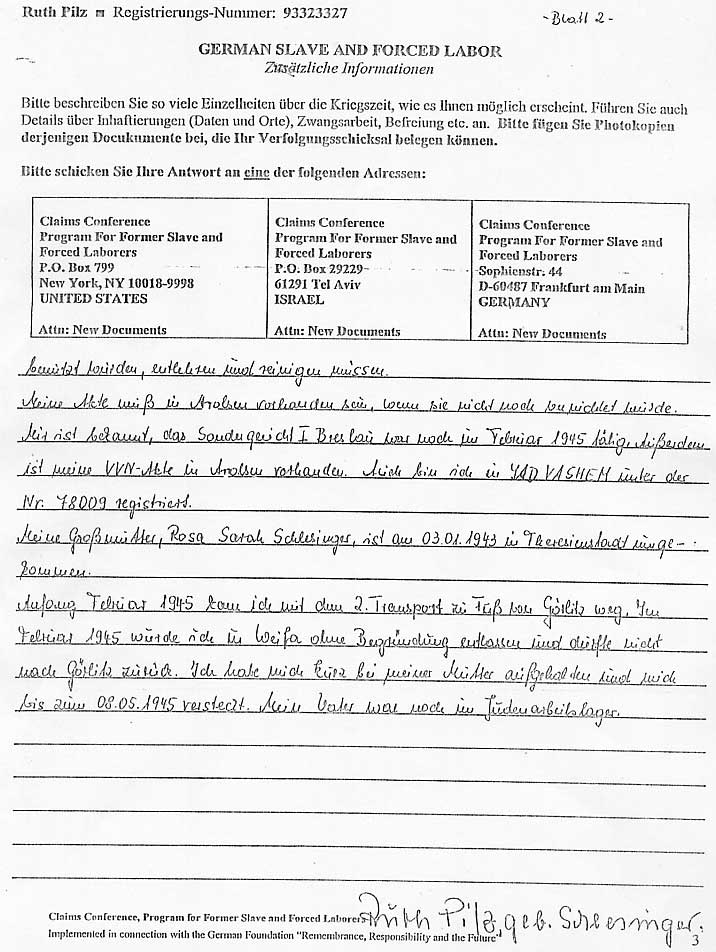 Ruth Pilz ■ Registrierungs-Nummer: 93323327
- Blatt 2 -
GERMAN SLAVE AND FORCED LABOR
Zusätzliche Informationen
Bitte beschreiben Sie so viele Einzelheiten über die Kriegszeit, wie es Ihnen möglich erscheint. Führen Sie auch
Details über Inhaftierungen (Daten und Orte), Zwangsarbeit, Befreiung etc. an. Bitte fügen Sie Photokopien
derjenigen Docukumente bei, die Ihr Verfolgungsschicksal belegen können.
Bitte schicken Sie Ihre Antwort an eine der folgenden Adressen:
Claims Conference
Program For Former Slave and
Forced Laborers
P.O. Box 799
New York, NY 10018-9998
UNITED STATES
Attn: New Documents
Claims Conference
Program For Former Slave and
Forced Laborers
P.O. Box 29229
61291 Tel Aviv
ISRAEL
Attn: New Documents
Claims Conference
Program For Former Slave and
Forced Laborers
Sophienstr. 44
D-60487 Frankfurt am Main
GERMANY
Attn: New Documents
benutzt wurden, entleeren und reinigen müssen.
Meine Akte muß in Arolsen vorhanden sein, wenn sie nicht noch vernichtet wurde.
Mir ist bekannt, das Sondergericht I Breslau war noch im Februar 1945 tätig. Außerdem
ist meine VVN-Akte in Arolsen vorhanden. Auch bin ich in YAD VASHEM unter der
Nr. 78009 registriert.
Meine Großmutter, Rosa Sarah Schlesinger, ist am 03.01.1943 in Theresienstadt umge-
kommen.
Anfang Februar 1945 kam ich mit dem 2. Transport zu Fuß von Görlitz weg. Im
Februar 1945 wurde ich in Weifa ohne Begründung entlassen und durfte nicht
nach Görlitz zurück. Ich habe mich kurz bei meiner Mutter aufgehalten und mich
bis zum 08.05.1945 versteckt. Mein Vater war noch im Judenarbeitslager.
Claims Conference, Program for Former Slave and Forced Laborers
Implemented in connection with the German Foundation "Remembrance, Responsibility and the Future"
Ruth Pilz, geb. Schlesinger.
3